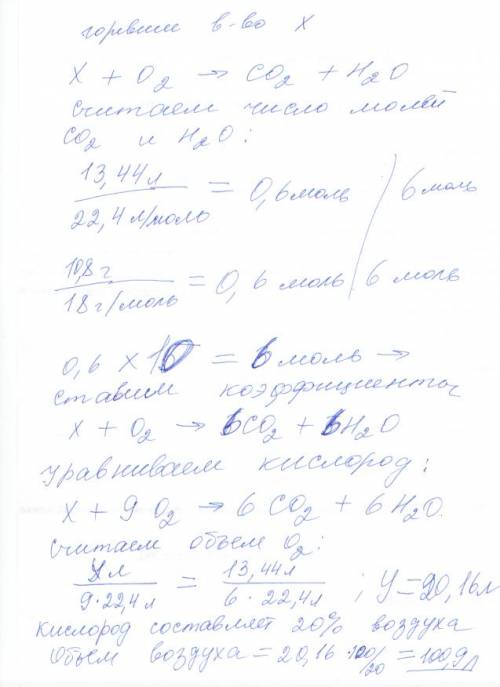 горевшие в-во X
X + O₂ → CO₂ + H₂O
считаем число молей
CO₂ и H₂O :
13,44л / 22,4 л/моль = 0,6 моль / 6 моль
10,8 г / 18 г/моль = 0,6 моль / 6 моль
0,6 × 10 = 6 моль →
ставим коэффициенты
X + O₂ → 6CO₂ + 6H₂O
Уравниваем кислород :
X + 9 O₂ → 6 CO₂ + 6 H₂O.
считаем объем O₂ :
Ул / 9·22,4л = 13,44л / 6·22,4л ; У = 20,16л
Кислород составляет 20% воздуха
Объем воздуха = 20,16 · 100/20 = 100,9л